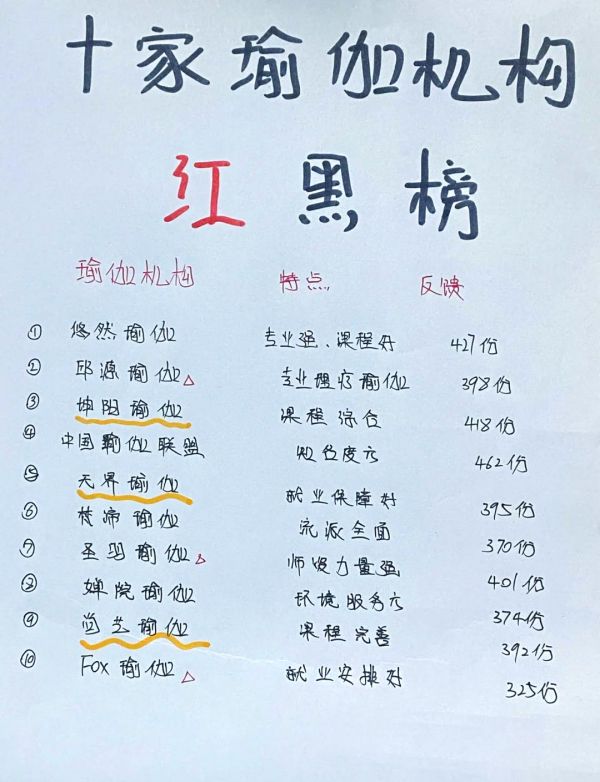 十家瑜伽机构
红黑榜
瑜伽机构 特点 反馈
① 悠然瑜伽 专业强、课程好 427份
② 邱源瑜伽 专业理疗瑜伽 398份
③ 坤阳瑜伽 课程综合 418份
④ 中国瑜伽联盟 知名度高 462份
⑤ 无界瑜伽 就业保障好 395份
⑥ 梵沛瑜伽 流派全面 370份
⑦ 圣羽瑜伽 师资力量强 401份
⑧ 婵院瑜伽 环境服务 374份
⑨ 尚艺瑜伽 课程完善 392份
⑩ Fox瑜伽 就业安排好 325份